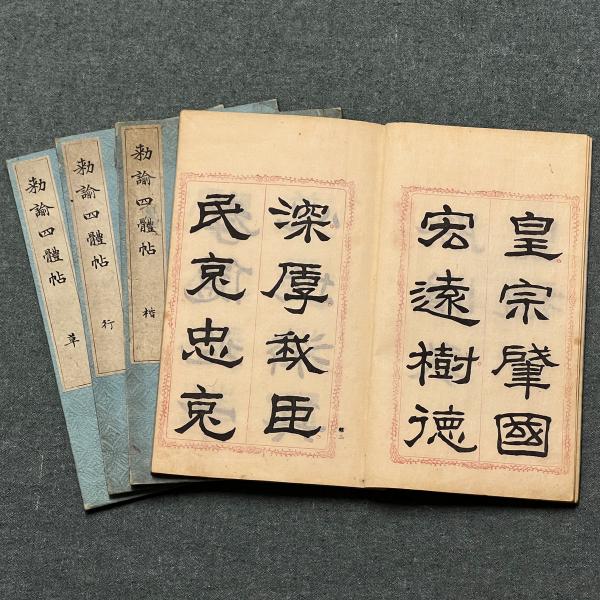 皇宗肇國
宏遠樹德
深厚我臣
民克忠克
勅諭四體帖
楷
勅諭四體帖
行
勅諭四體帖
草